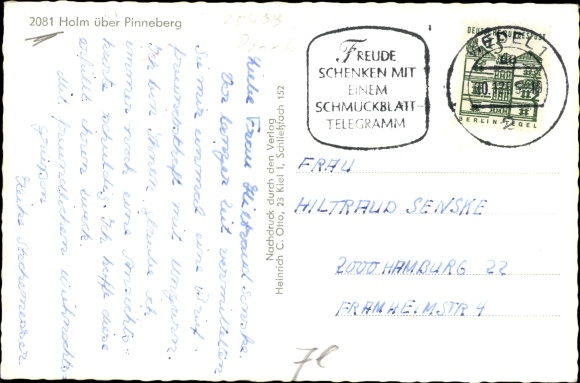 2081 Holm über Pinneberg
Liebe Frau Hiltraud Senske.
Vor langer Zeit vermittelten
Sie mir einmal eine Brief-
freundschaft mit Ungarn.
Ich bin Ihnen glaube ich
immer noch eine Ansichts-
karte schuldig. Ich hoffe diese
erfüllt ihren Zweck.
Mit freundlichen
Grüßen
Nachdruck durch den Verlag
Heinrich C. Otto, 23 Kiel 1, Schließfach 152
FREUDE
SCHENKEN MIT
EINEM
SCHMUCKBLATT-
TELEGRAMM
WEDEL
DEUTSCHE BUNDESPOST
BERLIN-TEGEL
FRAU
HILTRAUD SENSKE
2000 HAMBURG 22
FRAMHEIMSTR 4